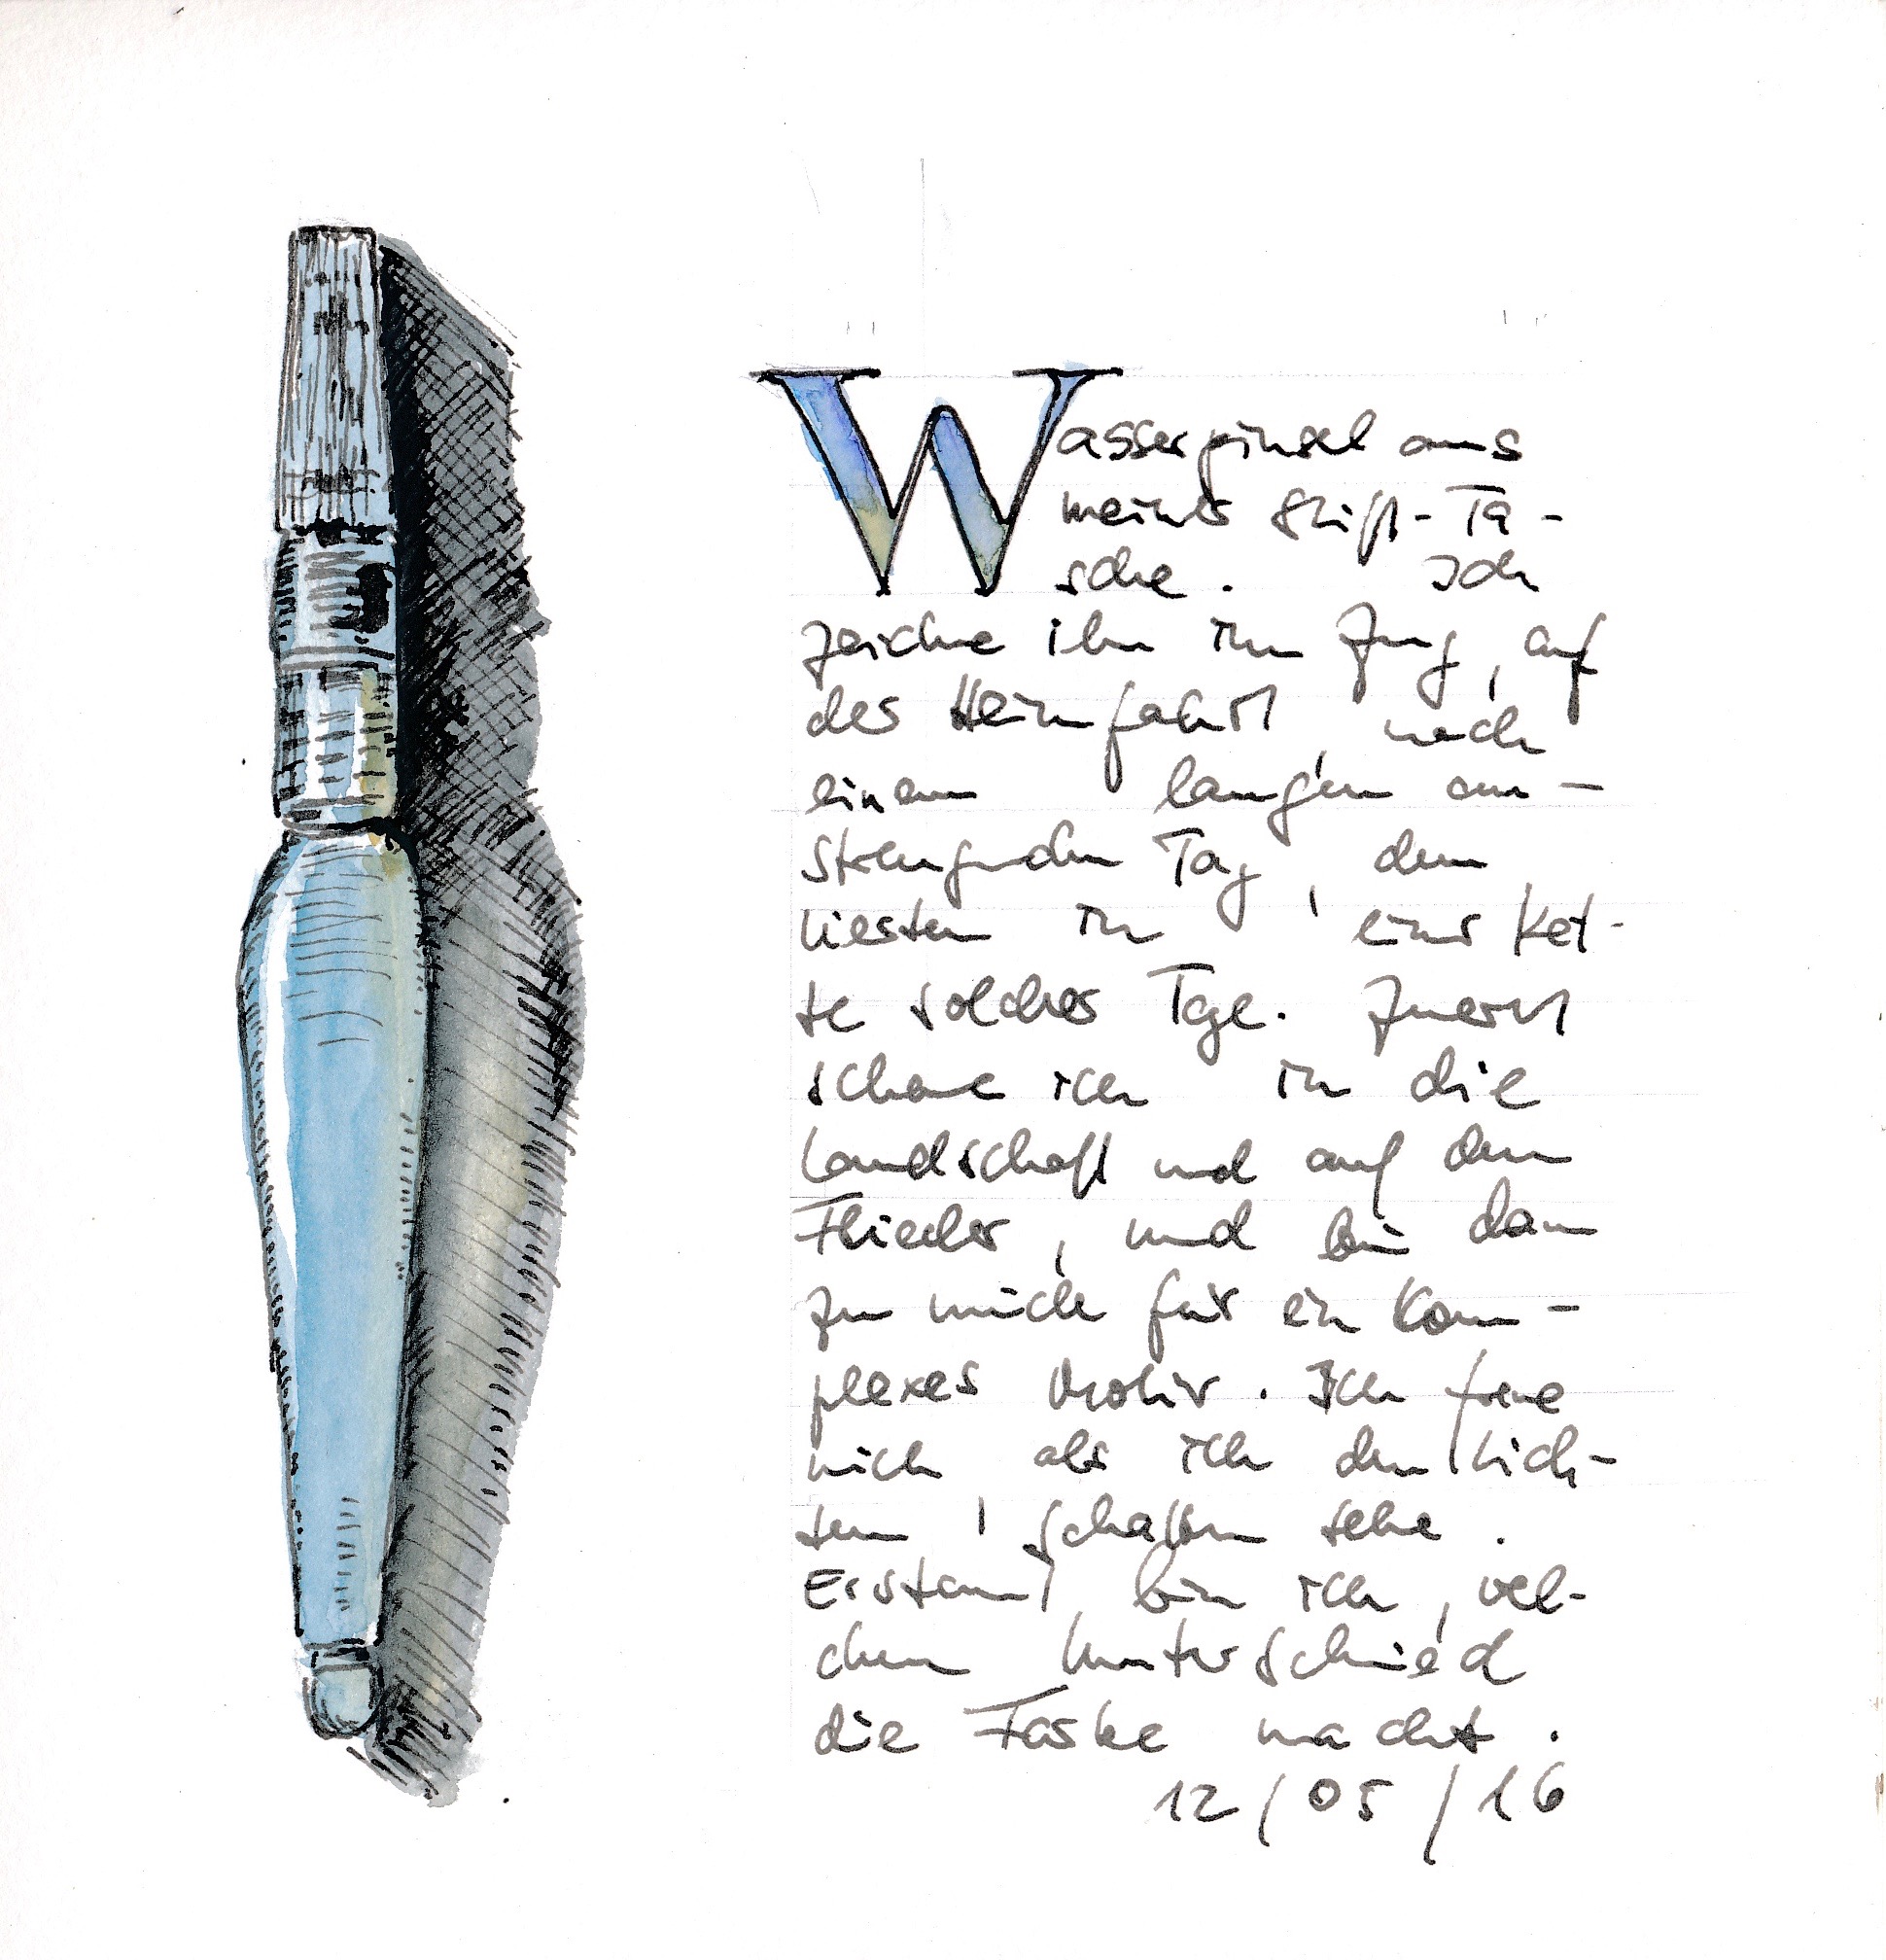 Wasserpinsel aus
meiner Stift-Ta-
sche. Ich
zeichne ihn im Zug, auf
der Heimfahrt, nach
einem langen an-
strengenden Tag, dem
in einer Ket-
te solcher Tage. Zuerst
schaue ich in die
Landschaft und auf den
Flieder, und bin dann
zu müde für ein Kom-
plexes Motiv. Ich freue
mich als ich den lich-
ten Schatten sehe.
Erstaunt bin ich, wel-
chen Unterschied
die Farbe macht.
12/05/16